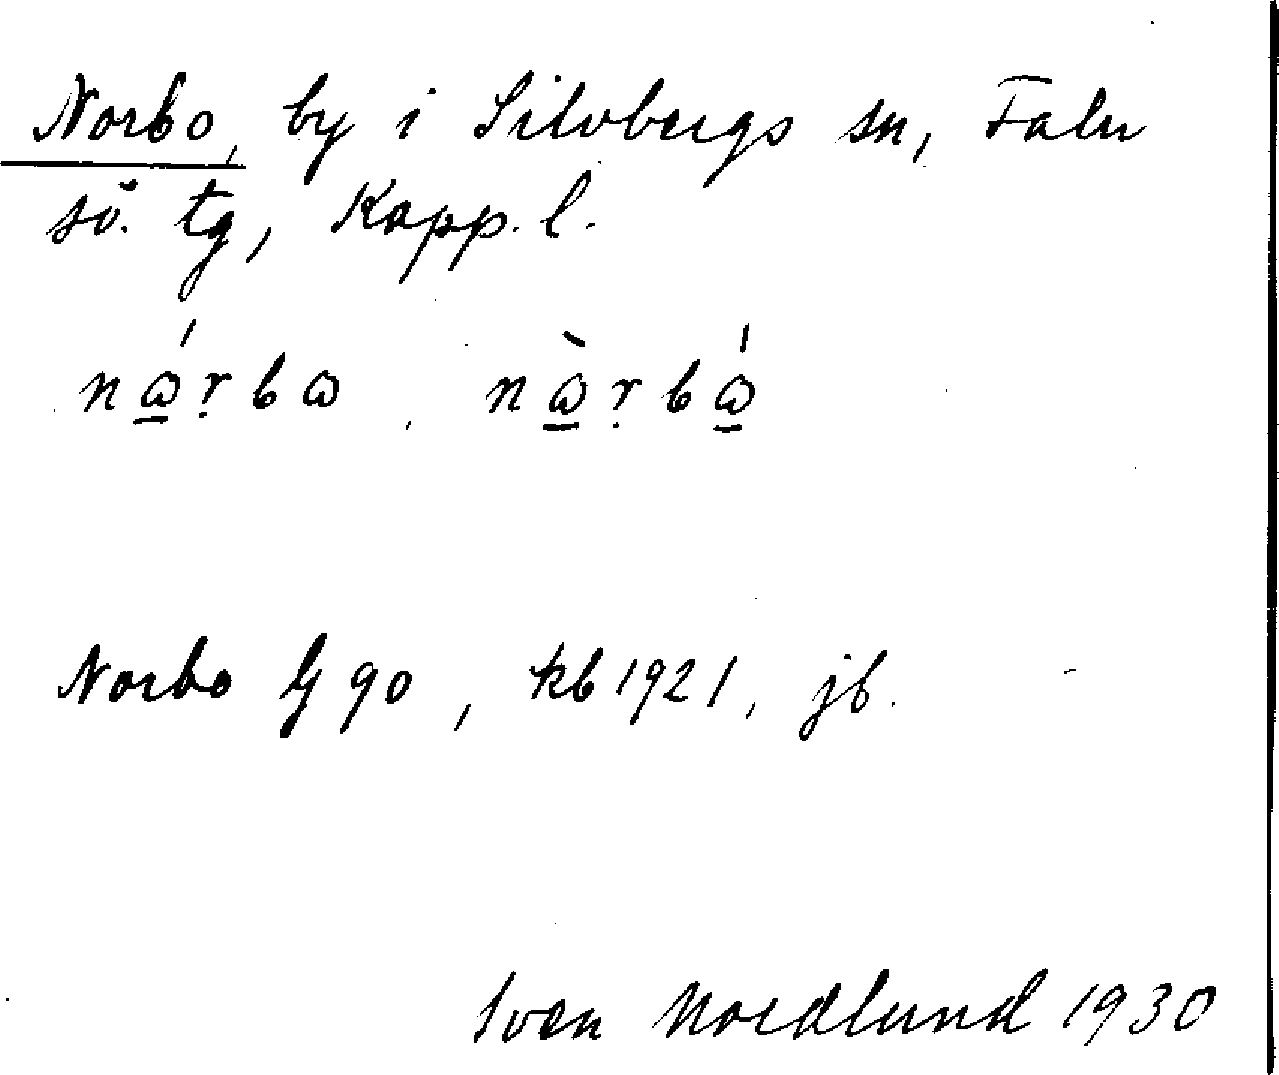 Norbo, by i Silvbergs sn, Falu
sö. tg, Kopp. l.
nώ̲ṛbω, nὼ̲ṛbώ̲
Norbo G 90, kb 1921, jb.
Sven Nordlund 1930